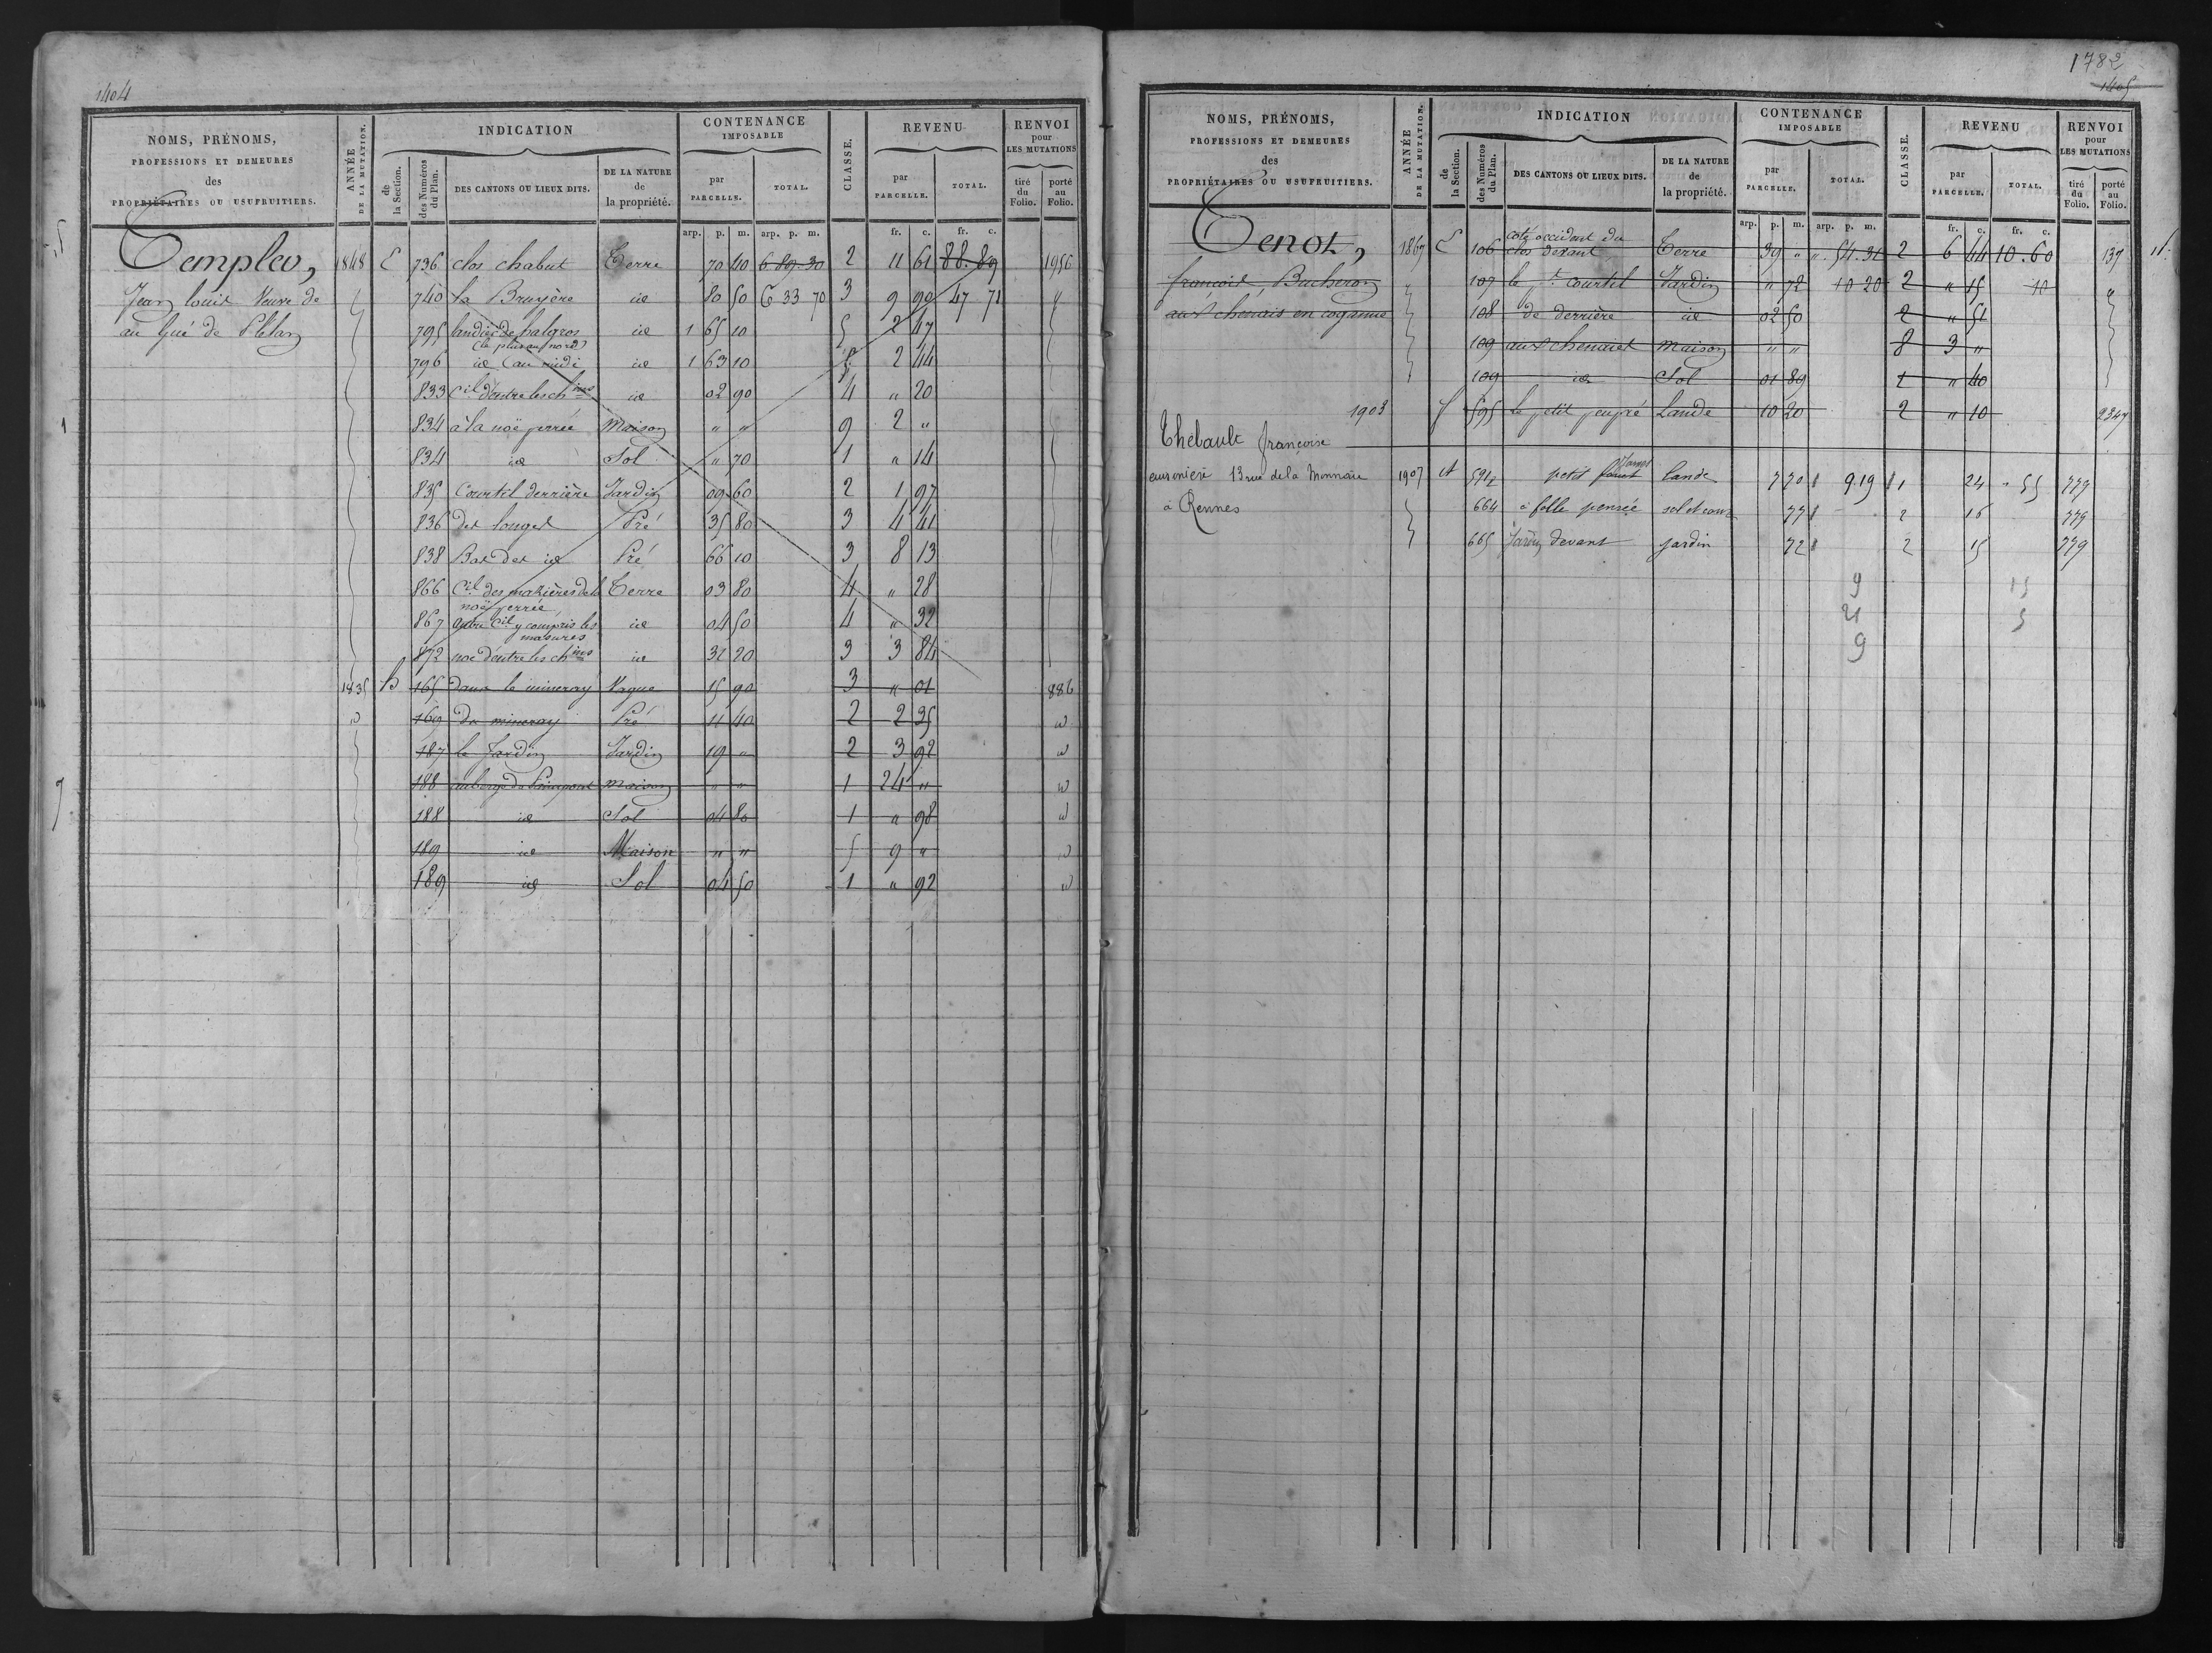 1404
NOMS, PRÉNOMS, PROFESSIONS ET DEMEURES des PROPRIÉTAIRES OU USUFRUITIERS.
ANNÉE DE LA MUTATION.
INDICATION
de la Section.
des Numéros du Plan.
DES CANTONS OU LIEUX DITS.
DE LA NATURE de la propriété.
CONTENANCE IMPOSABLE
par PARCELLE.
TOTAL.
CLASSE.
REVENU
par PARCELLE.
TOTAL.
RENVOI pour LES MUTATIONS
tiré du Folio.
porté au Folio.
arp. p. m. arp. p. m. fr. c. fr. c.
Templer,
Jean Louis Veuve de
au Gué de Plélan
1848 E 736 clos chabut Terre 70 40 6.89.30 2 11 61 88.89 1956
740 la Bruyère id 80 50 6 33 70 3 9 90 47 71 "
795 landier de halgros (le plus au nord) id 1 65 10 5 2 47
796 id (au midi) id 1 63 10 5 2 44
833 C.il d'entre les ch.ins id 02 90 4 " 20
834 à la noë perrée Maison " " 9 2 "
834 id Sol " 70 1 " 14
835 Courtil derrière Jardin 09 60 2 1 97
836 des longes Pré 35 80 3 4 41
838 Bas des id Pré 66 10 3 8 13
866 C.il des mazières de la noë perrée Terre 03 80 4 " 28
867 autre C.il y compris les masures id 04 50 4 " 32
872 noë d'entre les ch.ins id 31 20 3 3 84
1835 B 165 dans le mineray Vague 15 90 3 " 01 886
169 du mineray Pré 11 40 2 2 35
187 le Jardin Jardin 19 " 2 3 92
188 au bourg de Paimpont Maison " " 1 24 "
188 id Sol 04 80 1 " 98
189 id Maison " " 5 9 "
189 id Sol 04 50 1 " 92
1782
1405
NOMS, PRÉNOMS, PROFESSIONS ET DEMEURES des PROPRIÉTAIRES OU USUFRUITIERS.
ANNÉE DE LA MUTATION.
INDICATION
de la Section.
des Numéros du Plan.
DES CANTONS OU LIEUX DITS.
DE LA NATURE de la propriété.
CONTENANCE IMPOSABLE
par PARCELLE.
TOTAL.
CLASSE.
REVENU
par PARCELLE.
TOTAL.
RENVOI pour LES MUTATIONS
tiré du Folio.
porté au Folio.
arp. p. m. arp. p. m. fr. c. fr. c.
Tenot,
françois Bucheron
aux chenais en coganne
1867 E 106 coté occident du clos devant Terre 39 " ". 54.31 2 6 44 10.60 137
107 le p.t courtil Jardin " 72 10 20 2 " 15 10 "
108 de derrière id 02 50 2 " 51
109 aux chenaies Maison " " 8 3 "
109 id Sol 01 89 1 " 40
1903 F 595 le petit Lande 10 20 2 " 10 2347
Thebault françoise
13 rue de la Monnaie
à Rennes
1907 A petit Lande 7 70 9.19 1 24 " 55 779
664 à folle pensée sol et cour 77 2 16 779
665 Jardin devant jardin 72 2 15 779